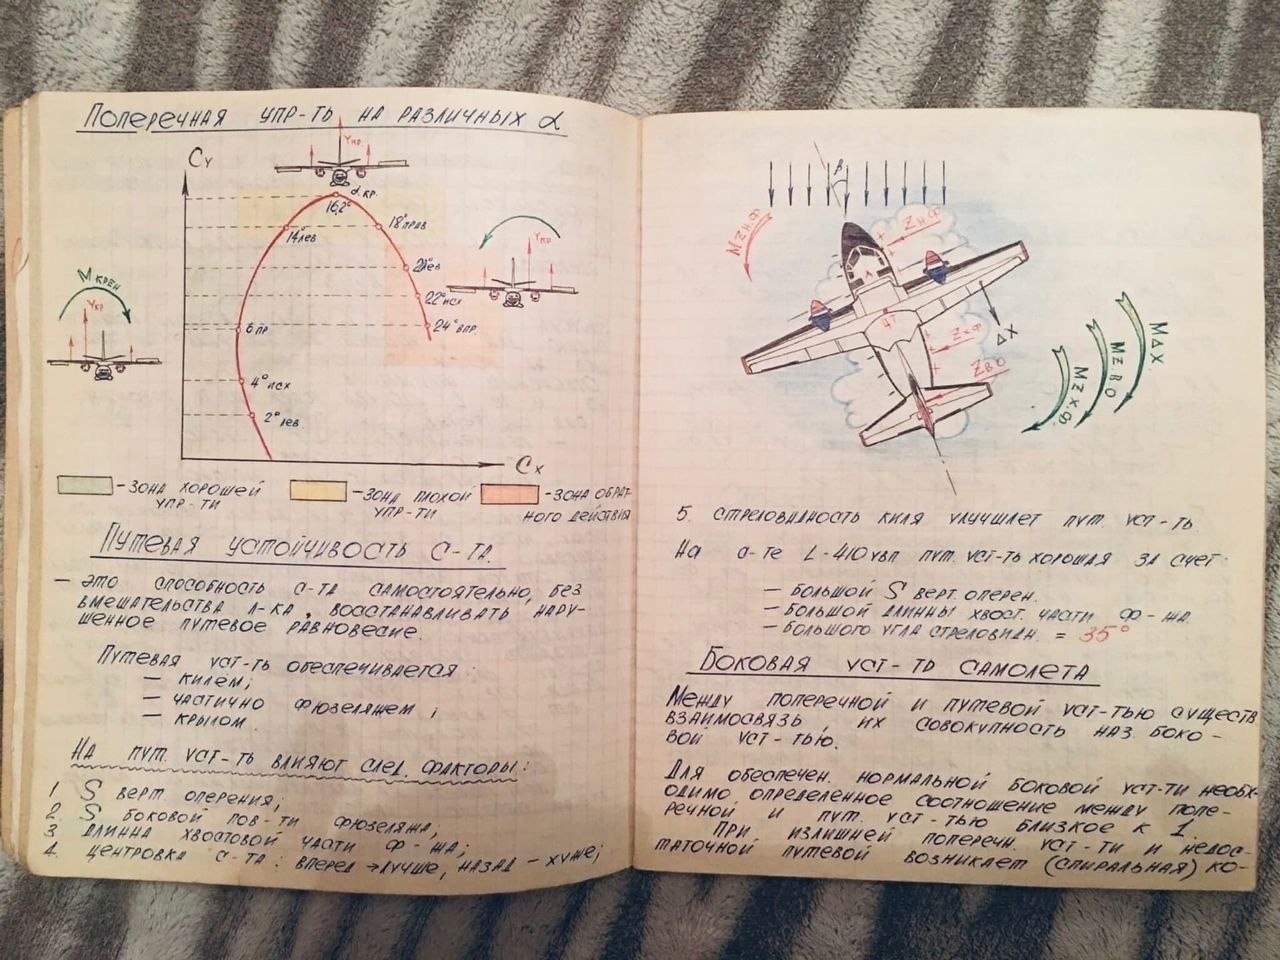 Поперечная упр-ть на различных α
Cу
Yкр.
α кр.
16,2°
14° лев
18° прав
Yкр
Мкрен
Yкр.
22° исх
6 пр
24° впр.
4° исх
2° лев
Cх
- зона хорошей
упр-ти
- зона плохой
упр-ти
- зона обрат-
ного действия
Путевая устойчивость с-та.
— это способность с-та самостоятельно, без
вмешательства л-ка, восстанавливать нару-
шенное путевое равновесие.
Путевая уст-ть обеспечивается:
— килем;
— частично фюзеляжем;
— крылом.
На пут. уст-ть влияют след. факторы:
1 S верт. оперения;
2. S боковой пов-ти фюзеляжа;
3 длинна хвостовой части ф-жа;
4. центровка с-та: вперед → лучше, назад – хуже;
β
MZн.ф
Zн.ф
4°
ΔX
Zх.ф
Zво
MΔX.
MZво
MZх.ф.
5. стреловидность киля улучшает пут. уст-ть
На с-те L-410 увп пут. уст-ть хорошая за счет:
— большой S верт. оперен.
— большой длинны хвост. части ф-жа
— большого угла стреловидн. = 35°
Боковая уст-ть самолета
Между поперечной и путевой уст-тью существ
взаимосвязь, их совокупность наз. боко-
вой уст-тью.
Для обеспечен. нормальной боковой уст-ти необх-
одимо определенное соотношение между попе-
речной и пут. уст-тью близкое к 1.
При излишней поперечн. уст-ти и недос-
таточной путевой возникает (спиральная) ко-